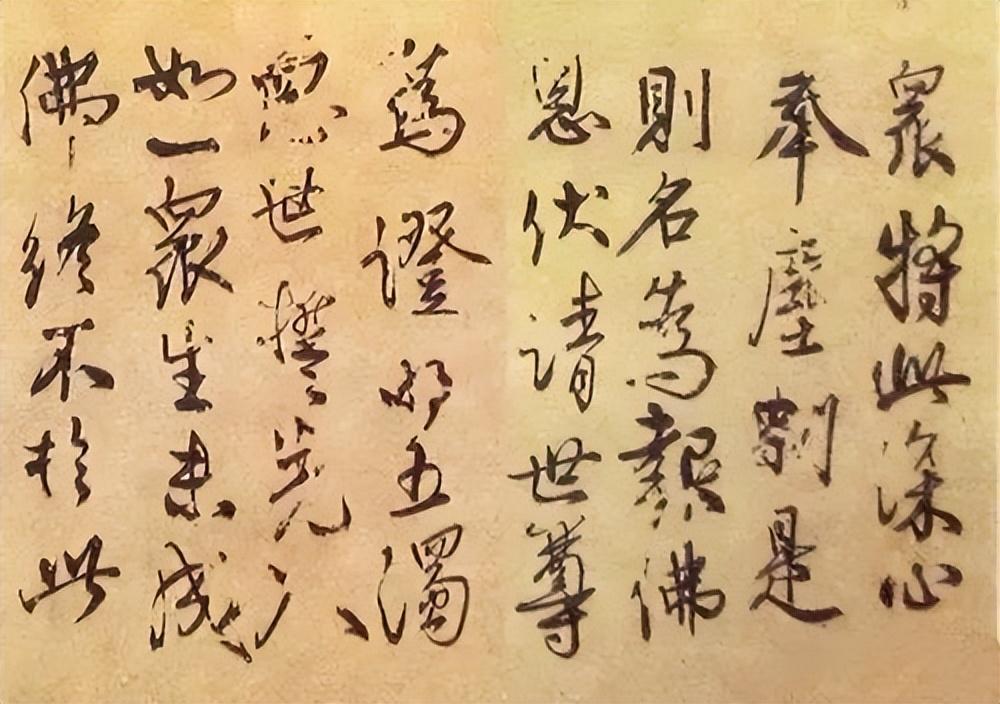 眾將此深心
奉塵剎是
則名為報佛
恩伏請世尊
為證明五濁
惡世誓先入
如一眾生未成
佛終不於此